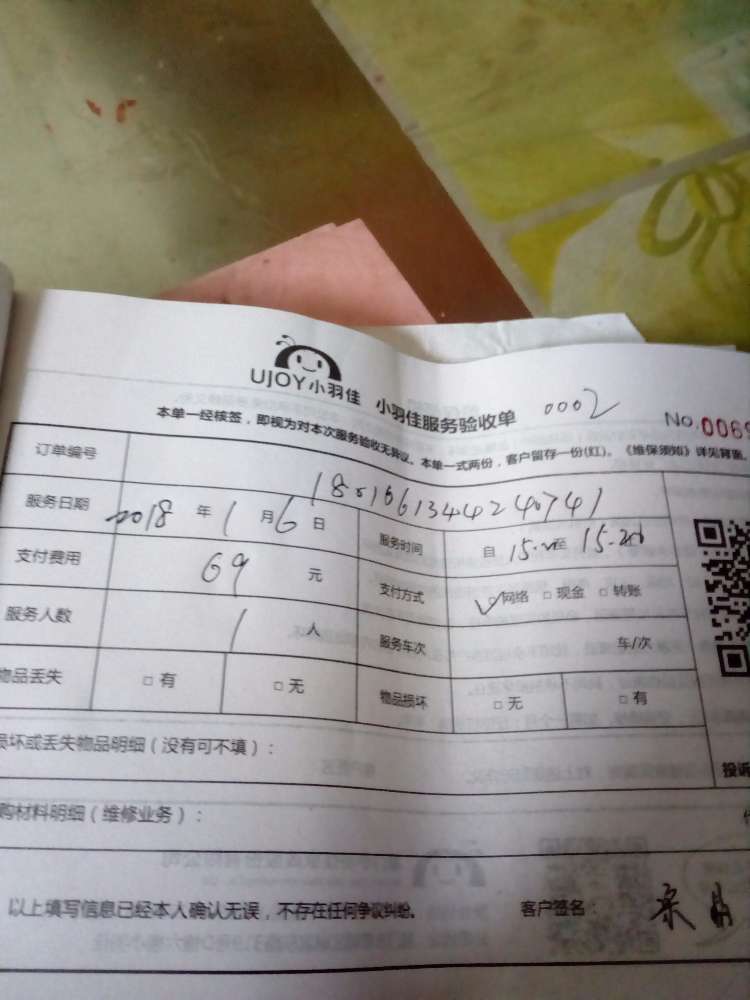 UJOY小羽佳 小羽佳服务验收单 0002 No.0069
本单一经核签，即视为对本次服务验收无异议。本单一式两份，客户留存一份(红)。《维保须知》详见背面。
订单编号
服务日期 2018 年 1 月 6 日 服务时间 自 至
支付费用 69 元 支付方式 ☑网络 □现金 □转账
服务人数 1 人 服务车次 车/次
物品丢失 □有 □无 物品损坏 □无 □有
损坏或丢失物品明细（没有可不填）： 投诉
购材料明细（维修业务）：
以上填写信息已经本人确认无误，不存在任何争议纠纷。 客户签名：